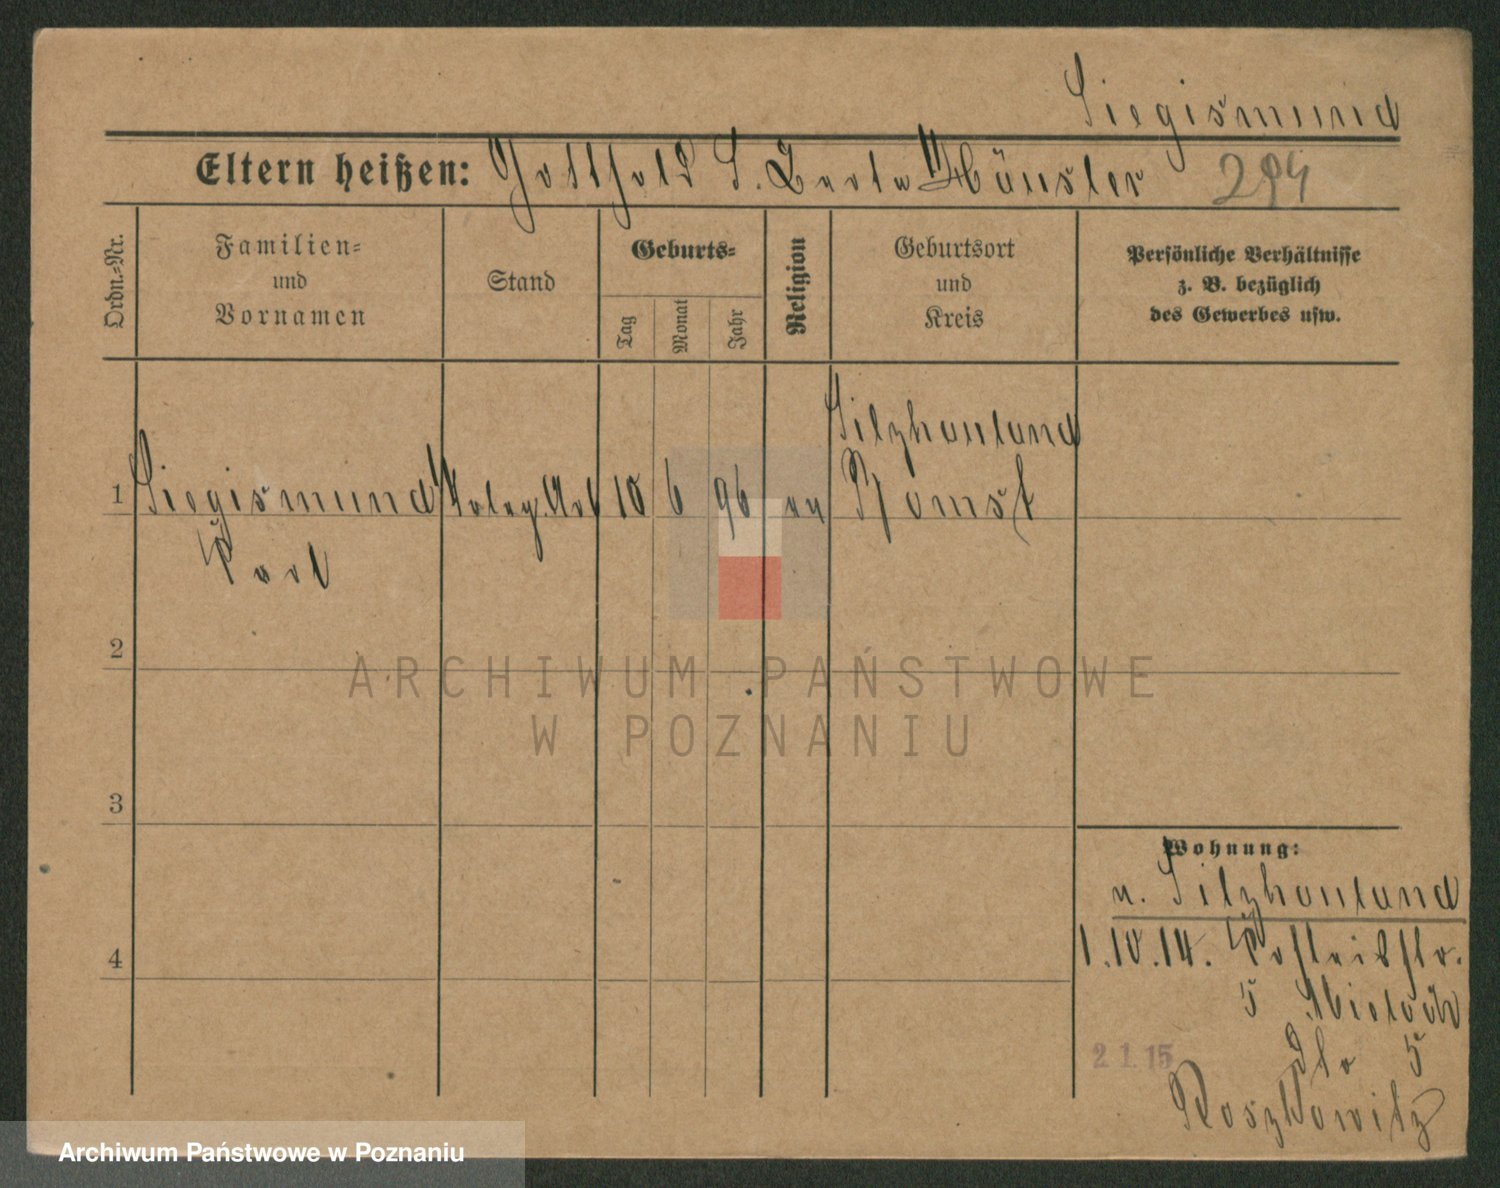 Siegismund
Eltern heißen: Gotthold S. Berta Hänsler 294
Ordn.-Nr.
Familien-
und
Vornamen
Stand
Geburts-
Tag
Monat
Jahr
Religion
Geburtsort
und
Kreis
Persönliche Verhältnisse
z. B. bezüglich
des Gewerbes usw.
Silzhauland
1 Siegismund Arb 10 6 96 ev Bomst
Karl
2
ARCHIWUM PAŃSTWOWE
W POZNANIU
3
Wohnung:
v. Silzhauland
1.10.14.
5
2.1.15 5
Roszkowitz
4
Archiwum Państwowe w Poznaniu